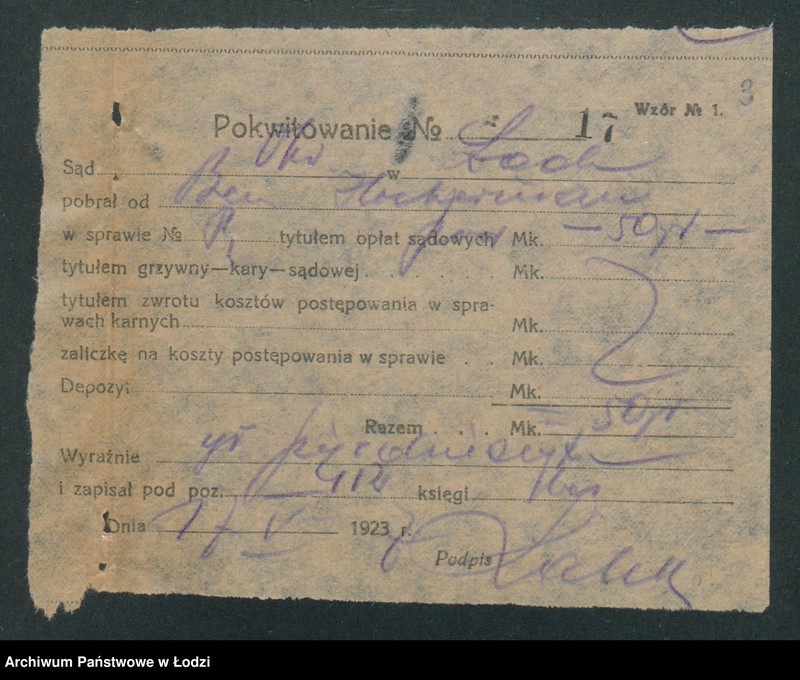 3
Wzór № 1.
Pokwitowanie № 17
Sąd Okr w Łodzi
pobrał od Ben
w sprawie № tytułem opłat sądowych Mk. — 50 gr —
tytułem grzywny—kary—sądowej . . . . Mk.
tytułem zwrotu kosztów postępowania w spra-
wach karnych Mk.
zaliczkę na koszty postępowania w sprawie . . Mk.
Depozyt Mk.
Razem . . . Mk. 50 gr
Wyraźnie gr pięćdziesiąt
i zapisał pod poz. 412 księgi
Dnia 17 V 1923 7 r.
Podpis
Archiwum Państwowe w Łodzi